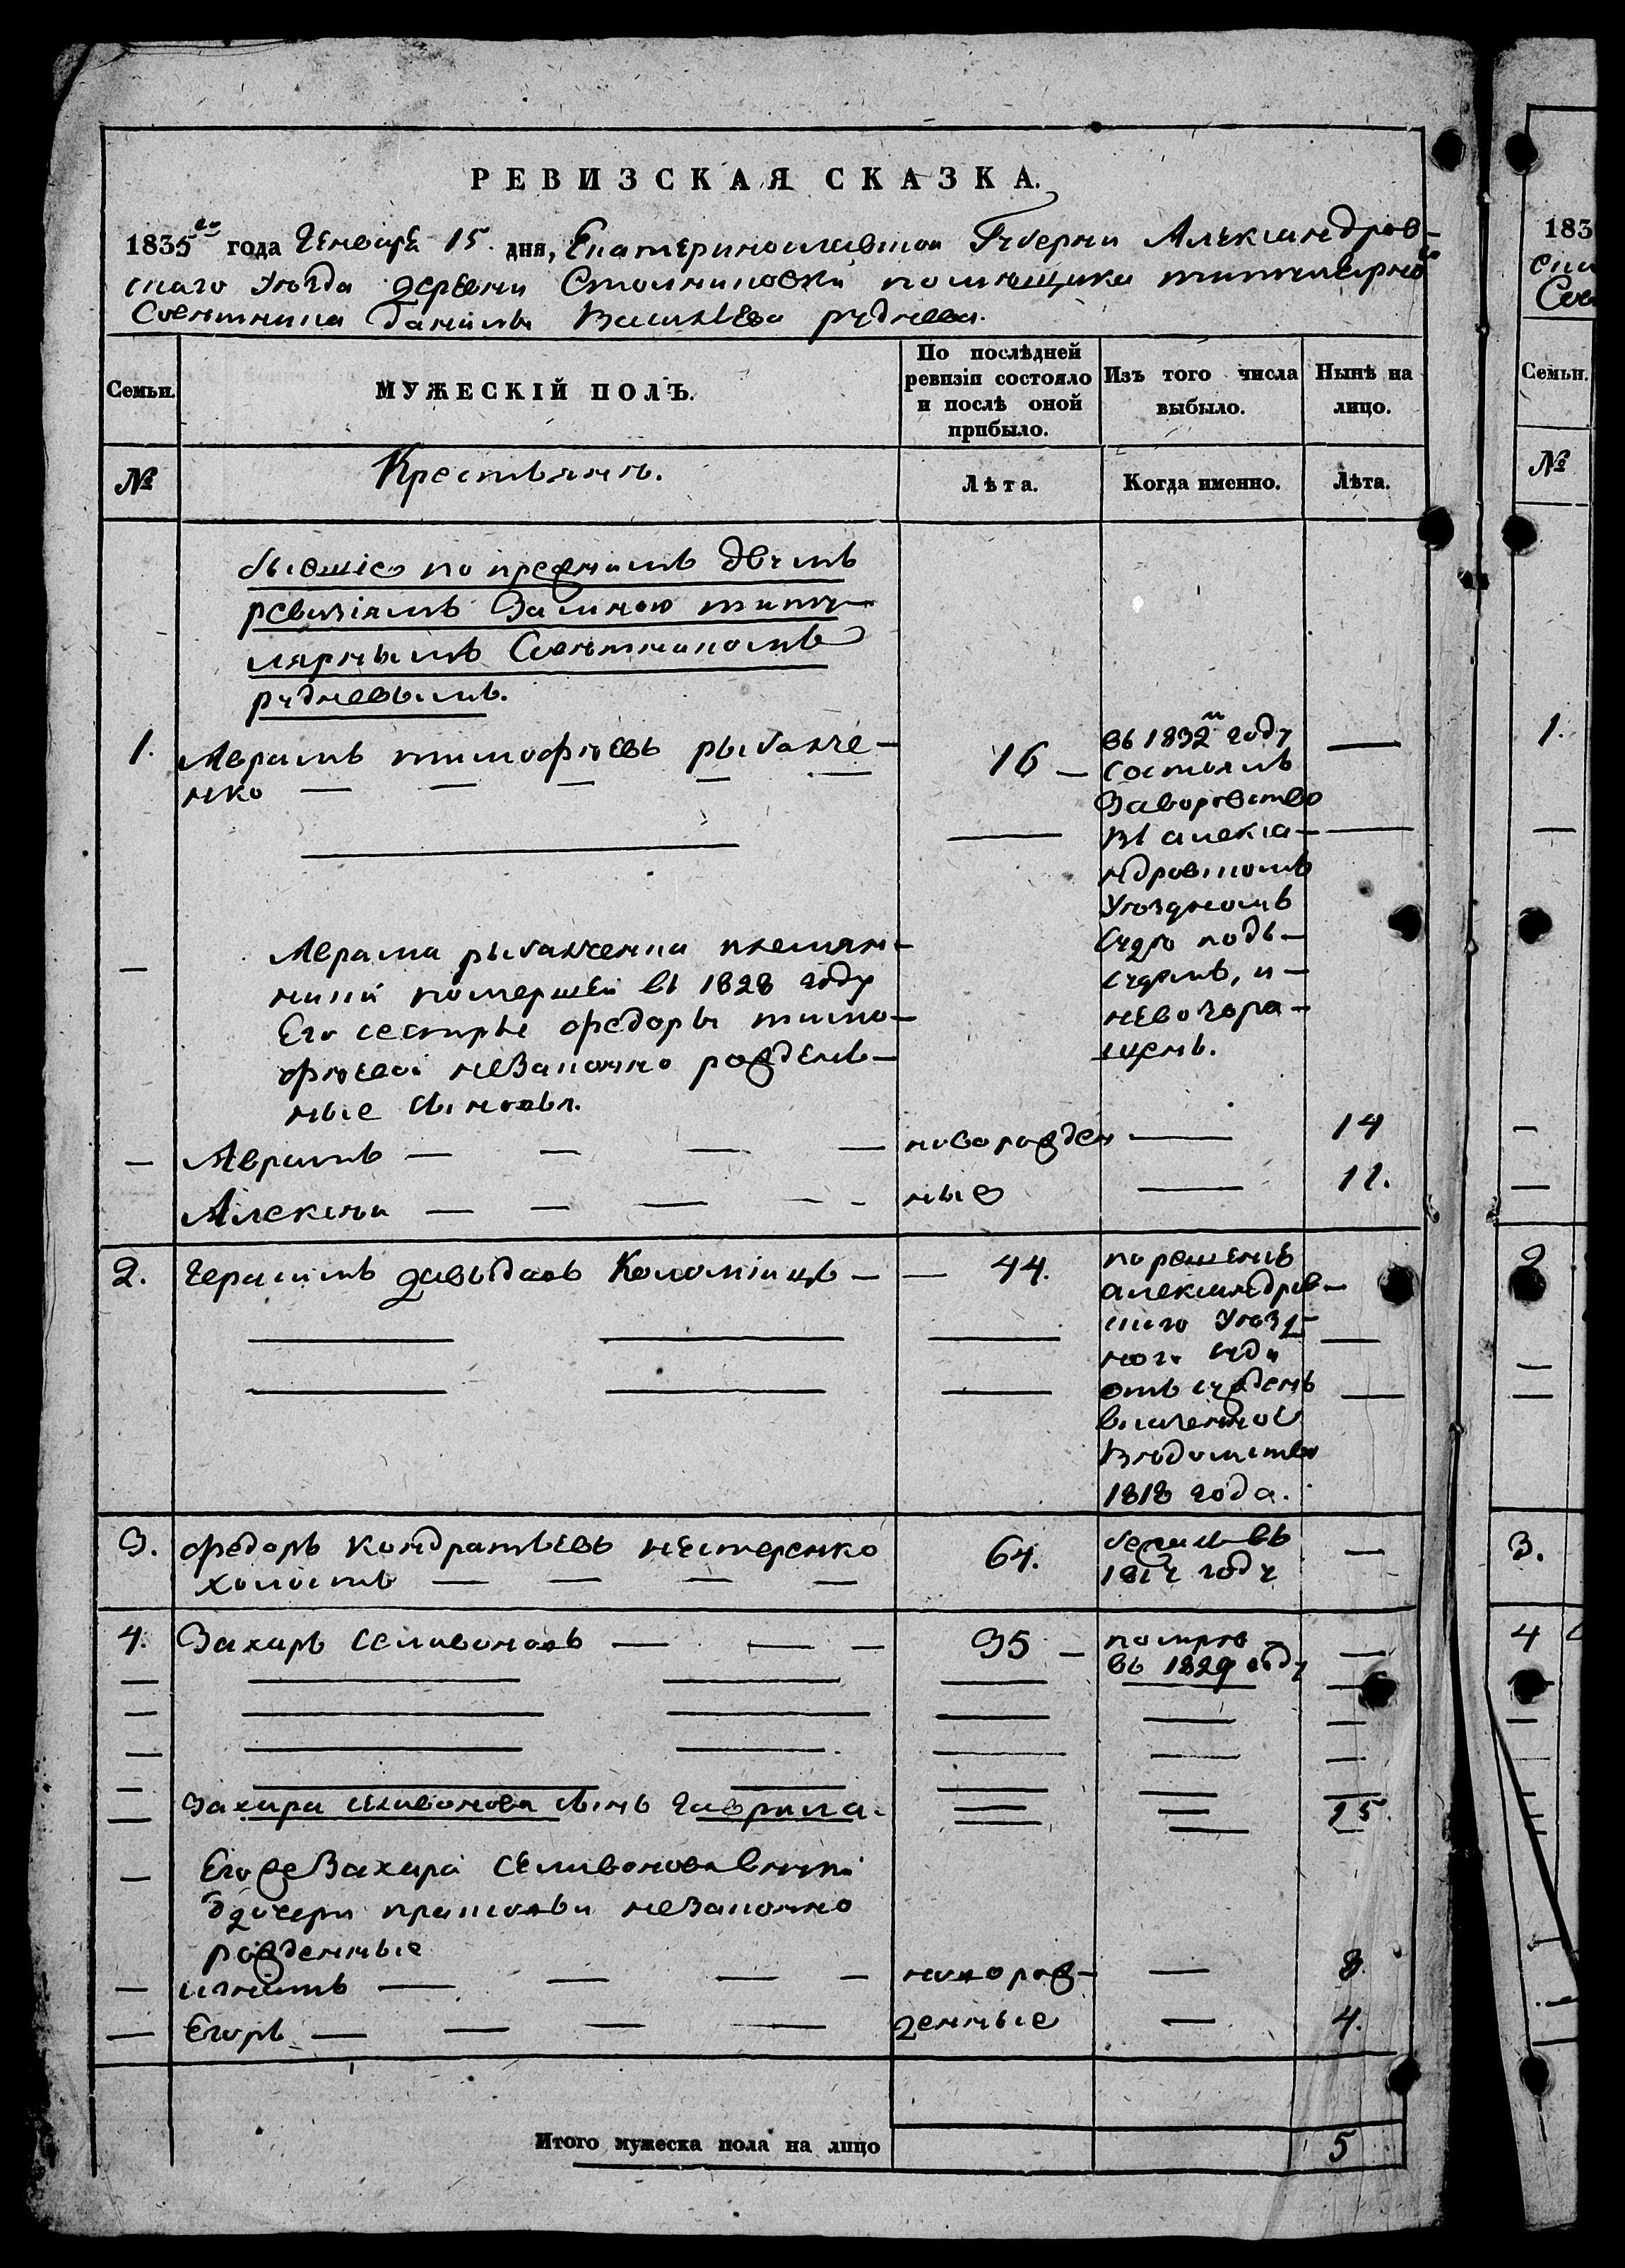 РЕВИЗСКАЯ СКАЗКА.
1835го года Генваря 15. дня, Екатеринославской Губерни Александров-
скаго уѣзда деревни помѣщика титулярнаго
Совѣтника Данилы Васильева руднева.
Семьи.
МУЖЕСКІЙ ПОЛЪ.
По послѣдней ревизіи состояло и послѣ оной прибыло.
Изъ того числа выбыло.
Нынѣ на лицо.
№
Крестьянъ.
Лѣта.
Когда именно.
Лѣта.
бывшіе по прежнимъ двумъ
ревизіямъ Замною титу-
лярнымъ Совѣтникомъ
рудневымъ.
1. Аврамъ тимофѣевъ рыбалче-
нко
16
въ 1832м году
Состоялъ
Заворовство
въ алекса-
ндровскомъ
Уѣздномъ
Судѣ подъ-
судомъ, и
невозвра-
щенъ.
Аврама рыбалченка племян-
ники помершей въ 1828 году
Его сестры федоры тимо-
фѣевой неЗаконно рожден-
ные сыновья.
Аврамъ
новорожден
14
Алексѣй
ные
11.
2. Герасимъ давыдовъ Коломіецъ
44.
по решенію
александров-
скаго Уѣзд-
ного суда
отъ сужденъ
Вѣдомство
1818 года.
3. федоръ кондратьевъ нестеренко
холостъ
64.
бежалъ въ
году
4. Захаръ Селивоновъ
35
помре
въ 1829 году
Захара селивонова сынъ гаврила.
15.
Его же Захара Селивонова внуки
дочери прасковьи неЗаконно
рожденные
игнатъ
новорож-
8.
Егоръ
денные
4.
Итого мужеска пола на лицо
5
183
Семьи.
№
1.
2
3.
4